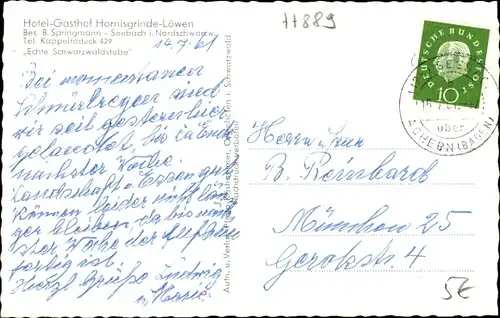 Hotel-Gasthof Hornisgrinde-Löwen
Bes. B. Springmann - Seebach i. Nordschwarzw.
Tel. Kappelrodeck 429
„Echte Schwarzwaldstube"
14.7.61
Bei momentanen
Schnürlregen sind
wir seit gestern hier
gelandet, bis Ende
nächster Woche.
Landschaft u. Essen gut
können leider nicht län
ger bleiben, da bis näch
ster Woche der Aufbau
fertig ist.
Herzl. Grüße Ludwig
u. Marie
11889
DEUTSCHE BUNDESPOST
10
über
ACHERN (BADEN)
Herrn u. Frau
B. Reinbard
München 25
Gerokstr. 4
5€